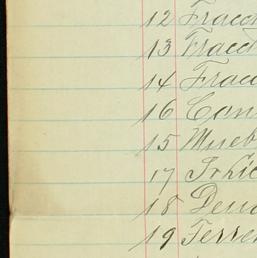 12 Fracc
13 Fracc
14 Fracc
16 Con
15 Mueb
17
18 Deu
19 Terre